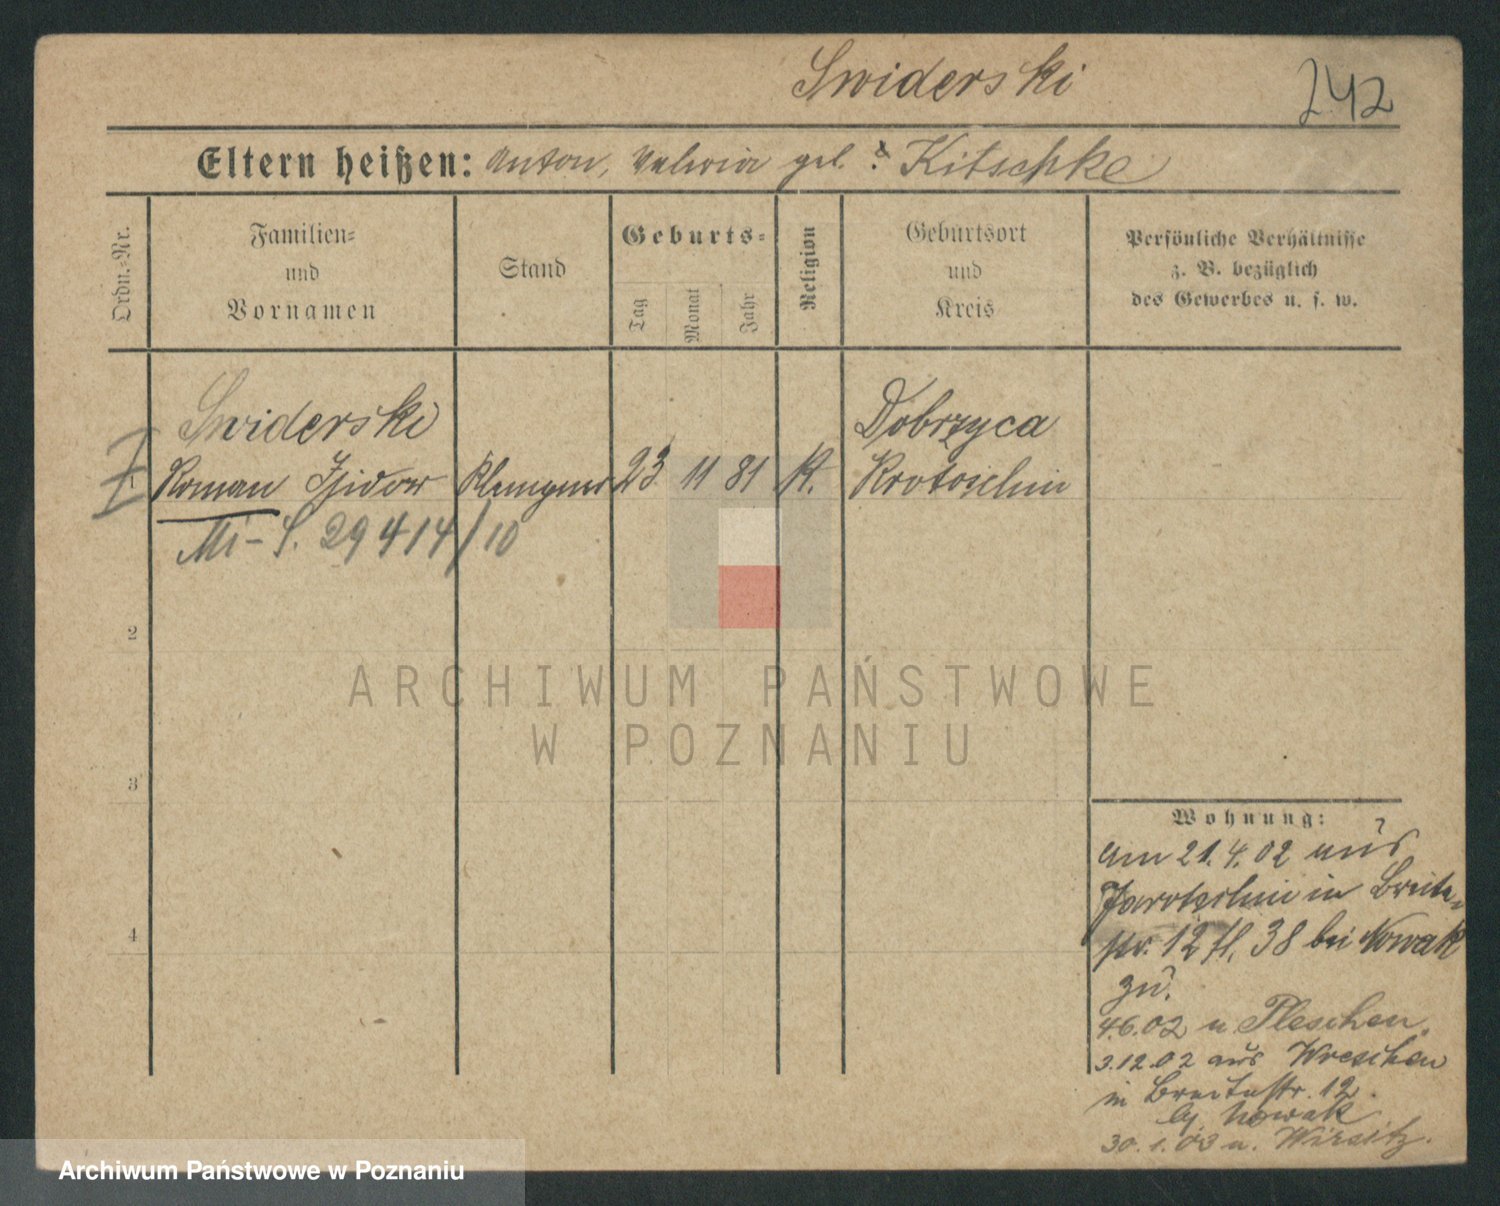 Swiderski
242
Eltern heißen: Anton, Valeria geb. Kitschke
Ordn.-Nr.
Familien-
und
Vornamen
Stand
Geburts-
Tag
Monat
Jahr
Religion
Geburtsort
und
Kreis
Persönliche Verhältnisse
z. B. bezüglich
des Gewerbes u. s. w.
Swiderski
Roman Isidor
Klempner
23 11 81
K.
Dobrzyca
Krotoschin
Mi-S. 29414/10
2
3
4
Wohnung:
Am 21.4.02 aus
Jarotschin in Breite-
str. 12 38 bei Nowak
zu.
4.6.02 n. Pleschen.
3.12.02 aus Wreschen
in Breitestr. 12.
bei Nowak
30.1.03 n. Wirsitz.
ARCHIWUM PAŃSTWOWE
W POZNANIU
Archiwum Państwowe w Poznaniu